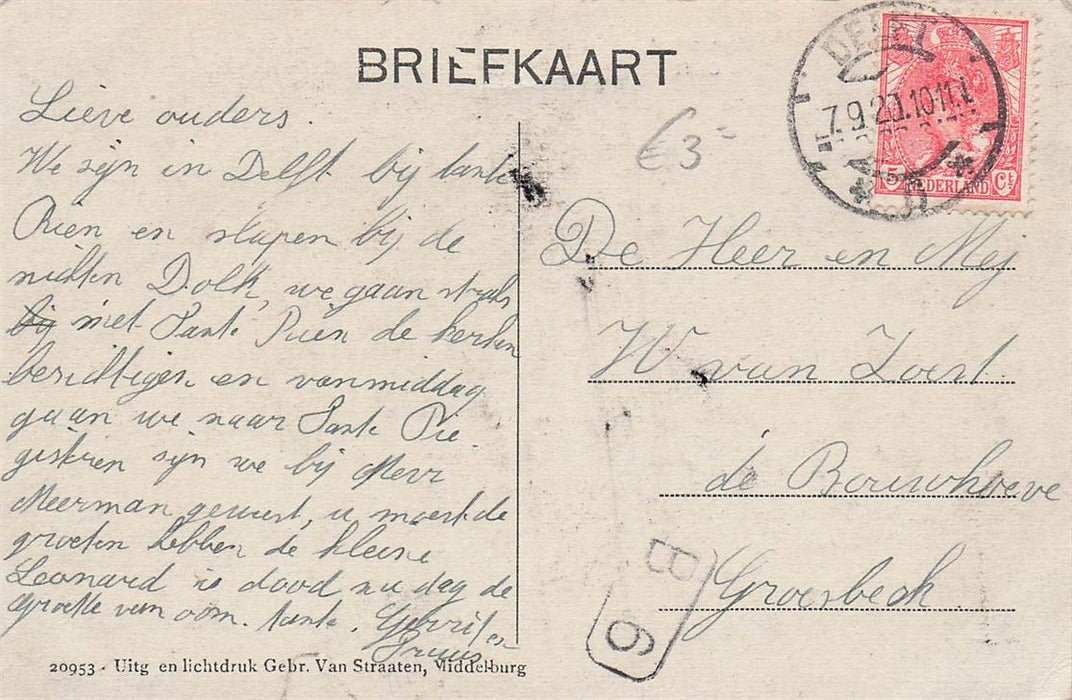 BRIEFKAART
DELFT
7.9.20.10-11.
5 NEDERLAND Ct
€3-
Lieve ouders.
We zijn in Delft bij tante
Rien en slapen bij de
nichten Dolk, we gaan straks
bij met Tante Rien de kerken
berichtigen en vanmiddag
gaan we naar Tante Pie
gisteren zijn we bij Mevr
Meerman geweest, u moest de
groeten hebben de kleine
Leonard is dood nu dag de
groette van oom. tante. Gerrit en
Truus
De Heer en Mej
W van Zoest
de Bouwhoeve
Groesbeek.
B
6
20953 - Uitg en lichtdruk Gebr. Van Straaten, Middelburg